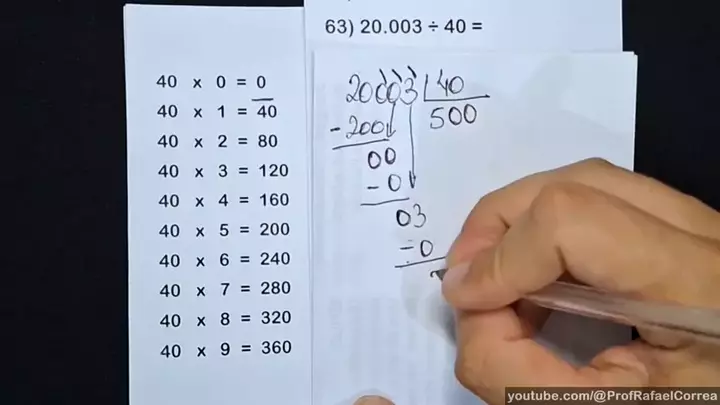 63) 20.003 ÷ 40 =
40 x 0 = 0
40 x 1 = 40
40 x 2 = 80
40 x 3 = 120
40 x 4 = 160
40 x 5 = 200
40 x 6 = 240
40 x 7 = 280
40 x 8 = 320
40 x 9 = 360
20003 40
-200 500
00
-0
03
-0
youtube.com/@ProfRafaelCorrea